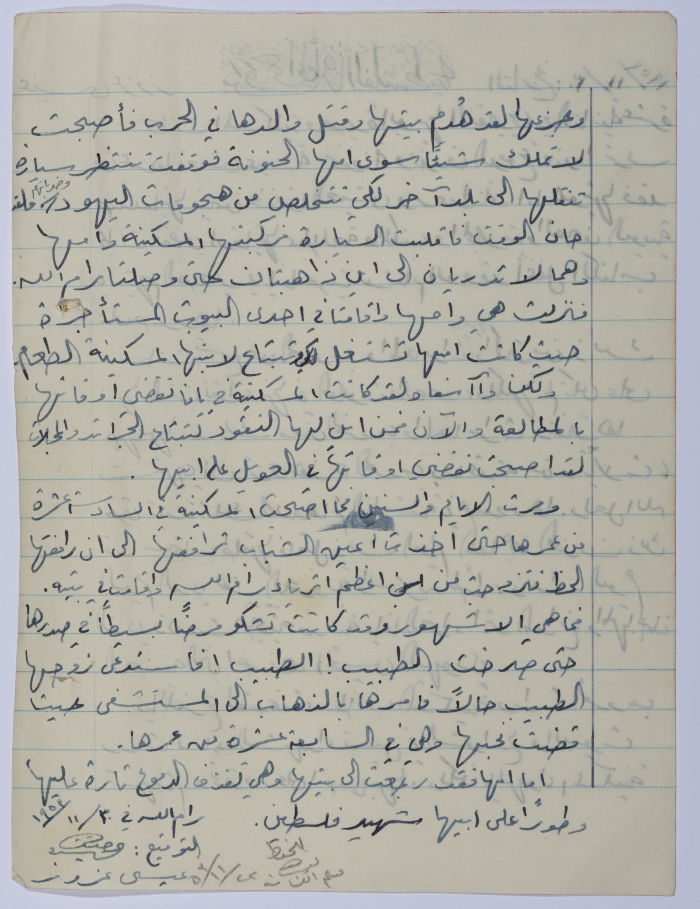 وعزعها لقد هُدم بيتها وقتل والدها في الحرب فأصبحت
لا تملك شيئًا سوى امها الحنونة فوقفت تنتظر سيارة
تنقلها الى بلد آخر لكي تتخلص من هجومات اليهود
حان الوقت فأقبلت السيارة تركبتها المسكينة وامها
وهما لا تدريان الى اين ذاهبتان حتى وصلتا رام الله.
فنزلت هي وامها واقامتا في احدى البيوت المستأجرة
حيث كانت امها تشتغل لكي تبتاع لابنتها المسكينة الطعام
ولكن وآأسفا ولقد كانت المسكينة في يافا تقضي اوقاتها
بالمطالعة والآن فمن اين لها النقود لتبتاع الجرائد والمجلات
لقد اصبحت تقضي اوقاتها في العويل على ابيها .
ومرت الايام والسنين فما اصبحت المسكينة في السادسة عشرة
من عمرها حتى أخذت أعين الشباب ترافقها الى ان رافقها
الحظ فتزوجت من ابن اعظم اثرياء رام الله واقامت في بيته.
فما هي الا شهور وقد كانت تشكو مرضًا بسيطًا في صدرها
حتى صرخت الطبيب !! الطبيب ! فاستدعى زوجها
الطبيب حالاً فأمرها بالذهاب الى المستشفى حيث
قضت نحبها وهي في السابعة عشرة من عمرها.
اما امها فقد رجعت الى بيتها وهي تذرف الدموع تارة عليها
وطورًا على ابيها شهيد فلسطين.
رام الله في ٣٠/١١/١٩٥٤
التوقيع :
عيسى عزوز